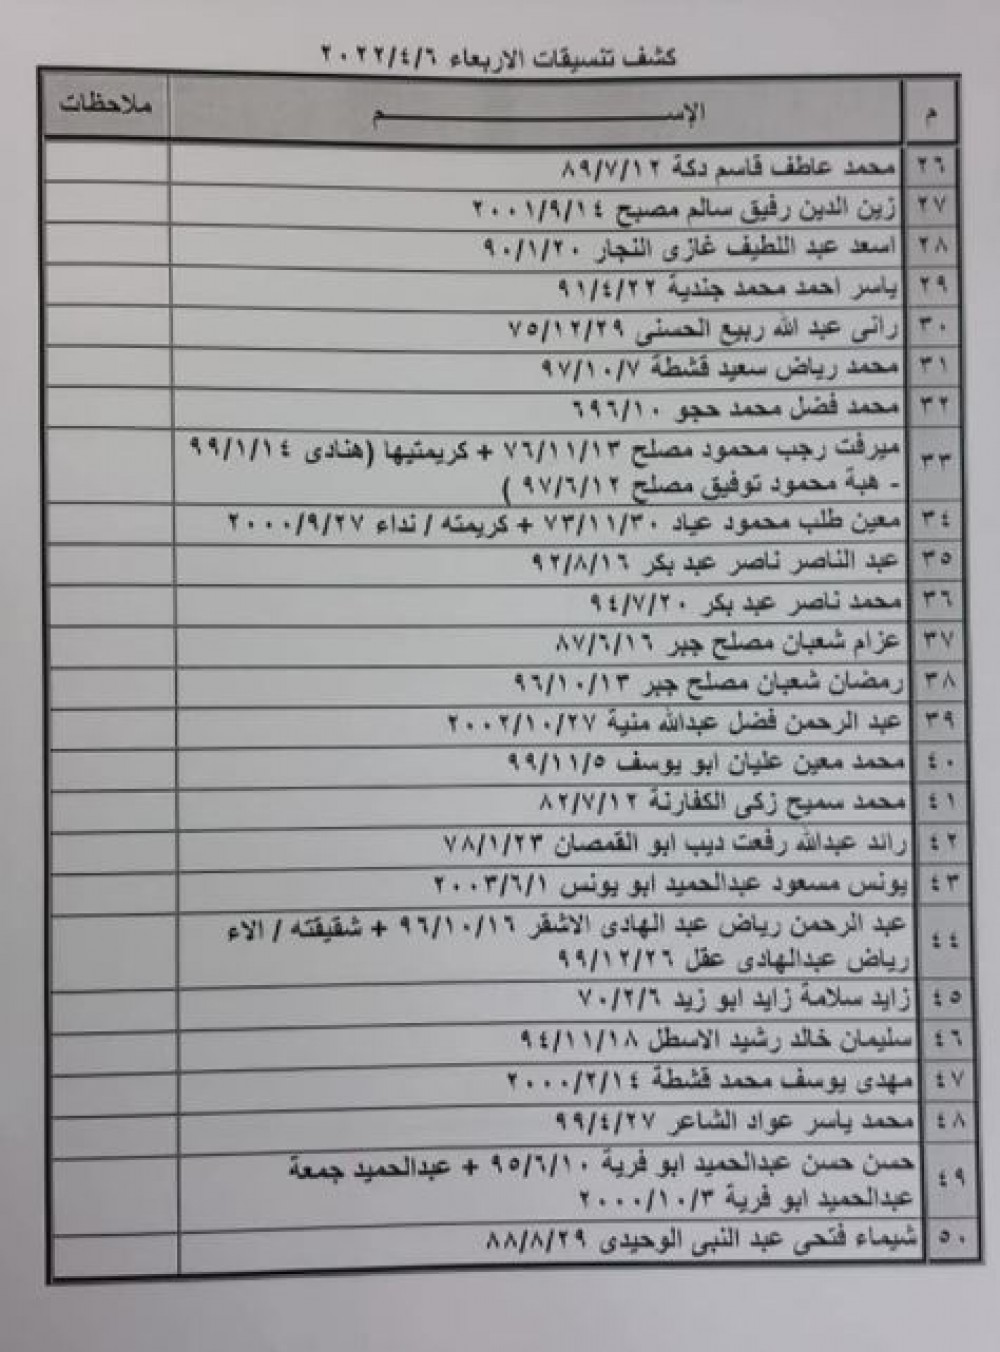 كشف تنسيقات الاربعاء ٢٠٢٢/٤/٦
م الإســـــم ملاحظات
٢٦ محمد عاطف قاسم دكة ٨٩/٧/١٢
٢٧ زين الدين رفيق سالم مصبح ٢٠٠١/٩/١٤
٢٨ اسعد عبد اللطيف غازى النجار ٩٠/١/٢٠
٢٩ ياسر احمد محمد جندية ٩١/٤/٢٢
٣٠ رانى عبد الله ربيع الحسنى ٧٥/١٢/٢٩
٣١ محمد رياض سعيد قشطة ٩٧/١٠/٧
٣٢ محمد فضل محمد حجو ٦٩٦/١٠
٣٣ ميرفت رجب محمود مصلح ٧٦/١١/١٣ + كريمتيها (هنادى ٩٩/١/١٤
- هبة محمود توفيق مصلح ٩٧/٦/١٢ )
٣٤ معين طلب محمود عياد ٧٣/١١/٣٠ + كريمته / نداء ٢٠٠٠/٩/٢٧
٣٥ عبد الناصر ناصر عبد بكر ٩٢/٨/١٦
٣٦ محمد ناصر عبد بكر ٩٤/٧/٢٠
٣٧ عزام شعبان مصلح جبر ٨٧/٦/١٦
٣٨ رمضان شعبان مصلح جبر ٩٦/١٠/١٣
٣٩ عبد الرحمن فضل عبدالله منية ٢٠٠٢/١٠/٢٧
٤٠ محمد معين عليان ابو يوسف ٩٩/١١/٥
٤١ محمد سميح زكى الكفارنة ٨٢/٧/١٢
٤٢ رائد عبدالله رفعت ديب ابو القمصان ٧٨/١/٢٣
٤٣ يونس مسعود عبدالحميد ابو يونس ٢٠٠٣/٦/١
٤٤ عبد الرحمن رياض عبد الهادى الاشقر ٩٦/١٠/١٦ + شقيقته / الاء
رياض عبدالهادى عقل ٩٩/١٢/٢٦
٤٥ زايد سلامة زايد ابو زيد ٧٠/٢/٦
٤٦ سليمان خالد رشيد الاسطل ٩٤/١١/١٨
٤٧ مهدى يوسف محمد قشطة ٢٠٠٠/٢/١٤
٤٨ محمد ياسر عواد الشاعر ٩٩/٤/٢٧
٤٩ حسن حسن عبدالحميد ابو فرية ٩٥/٦/١٠ + عبدالحميد جمعة
عبدالحميد ابو فرية ٢٠٠٠/١٠/٣
٥٠ شيماء فتحى عبد النبى الوحيدى ٨٨/٨/٢٩